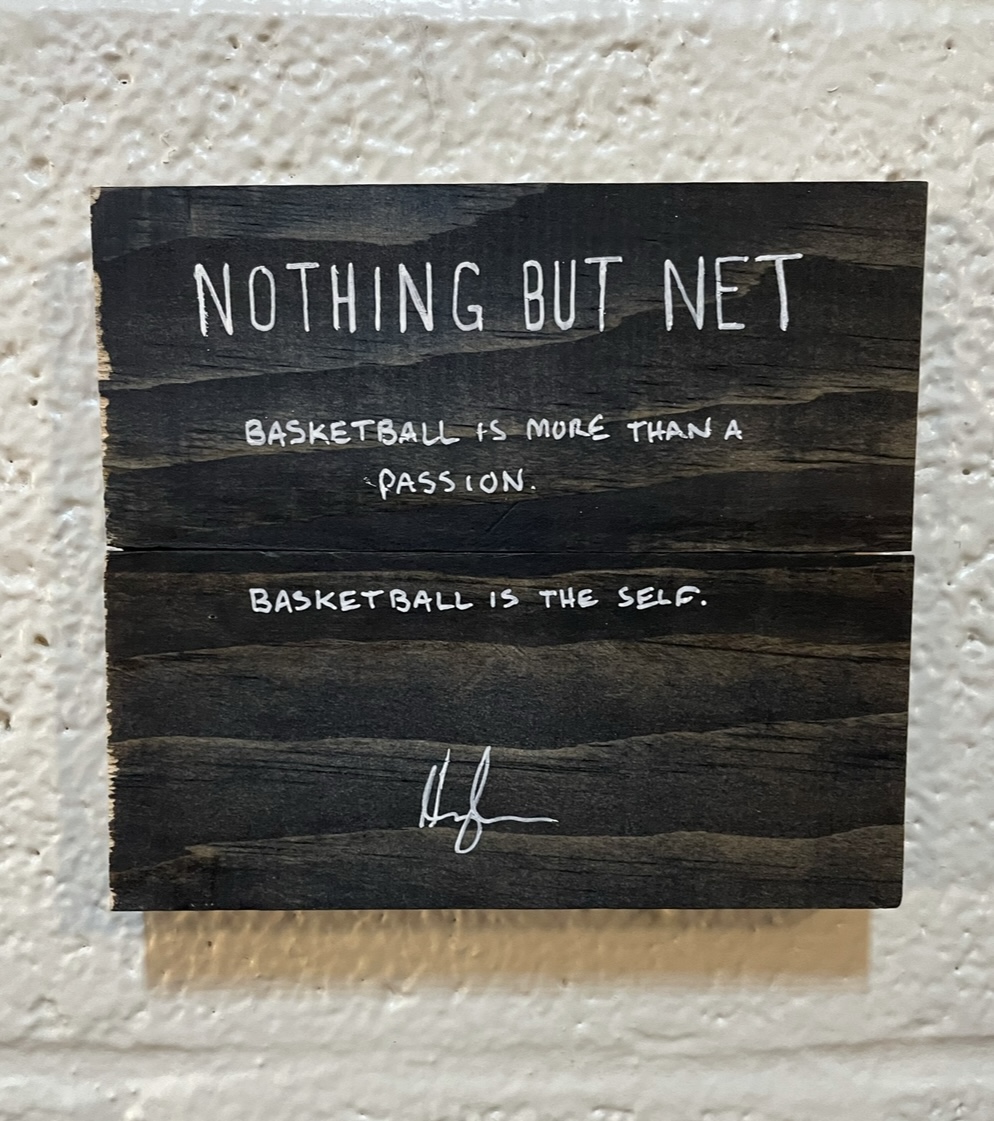 NOTHING BUT NET
BASKETBALL IS MORE THAN A
PASSION.
BASKETBALL IS THE SELF.